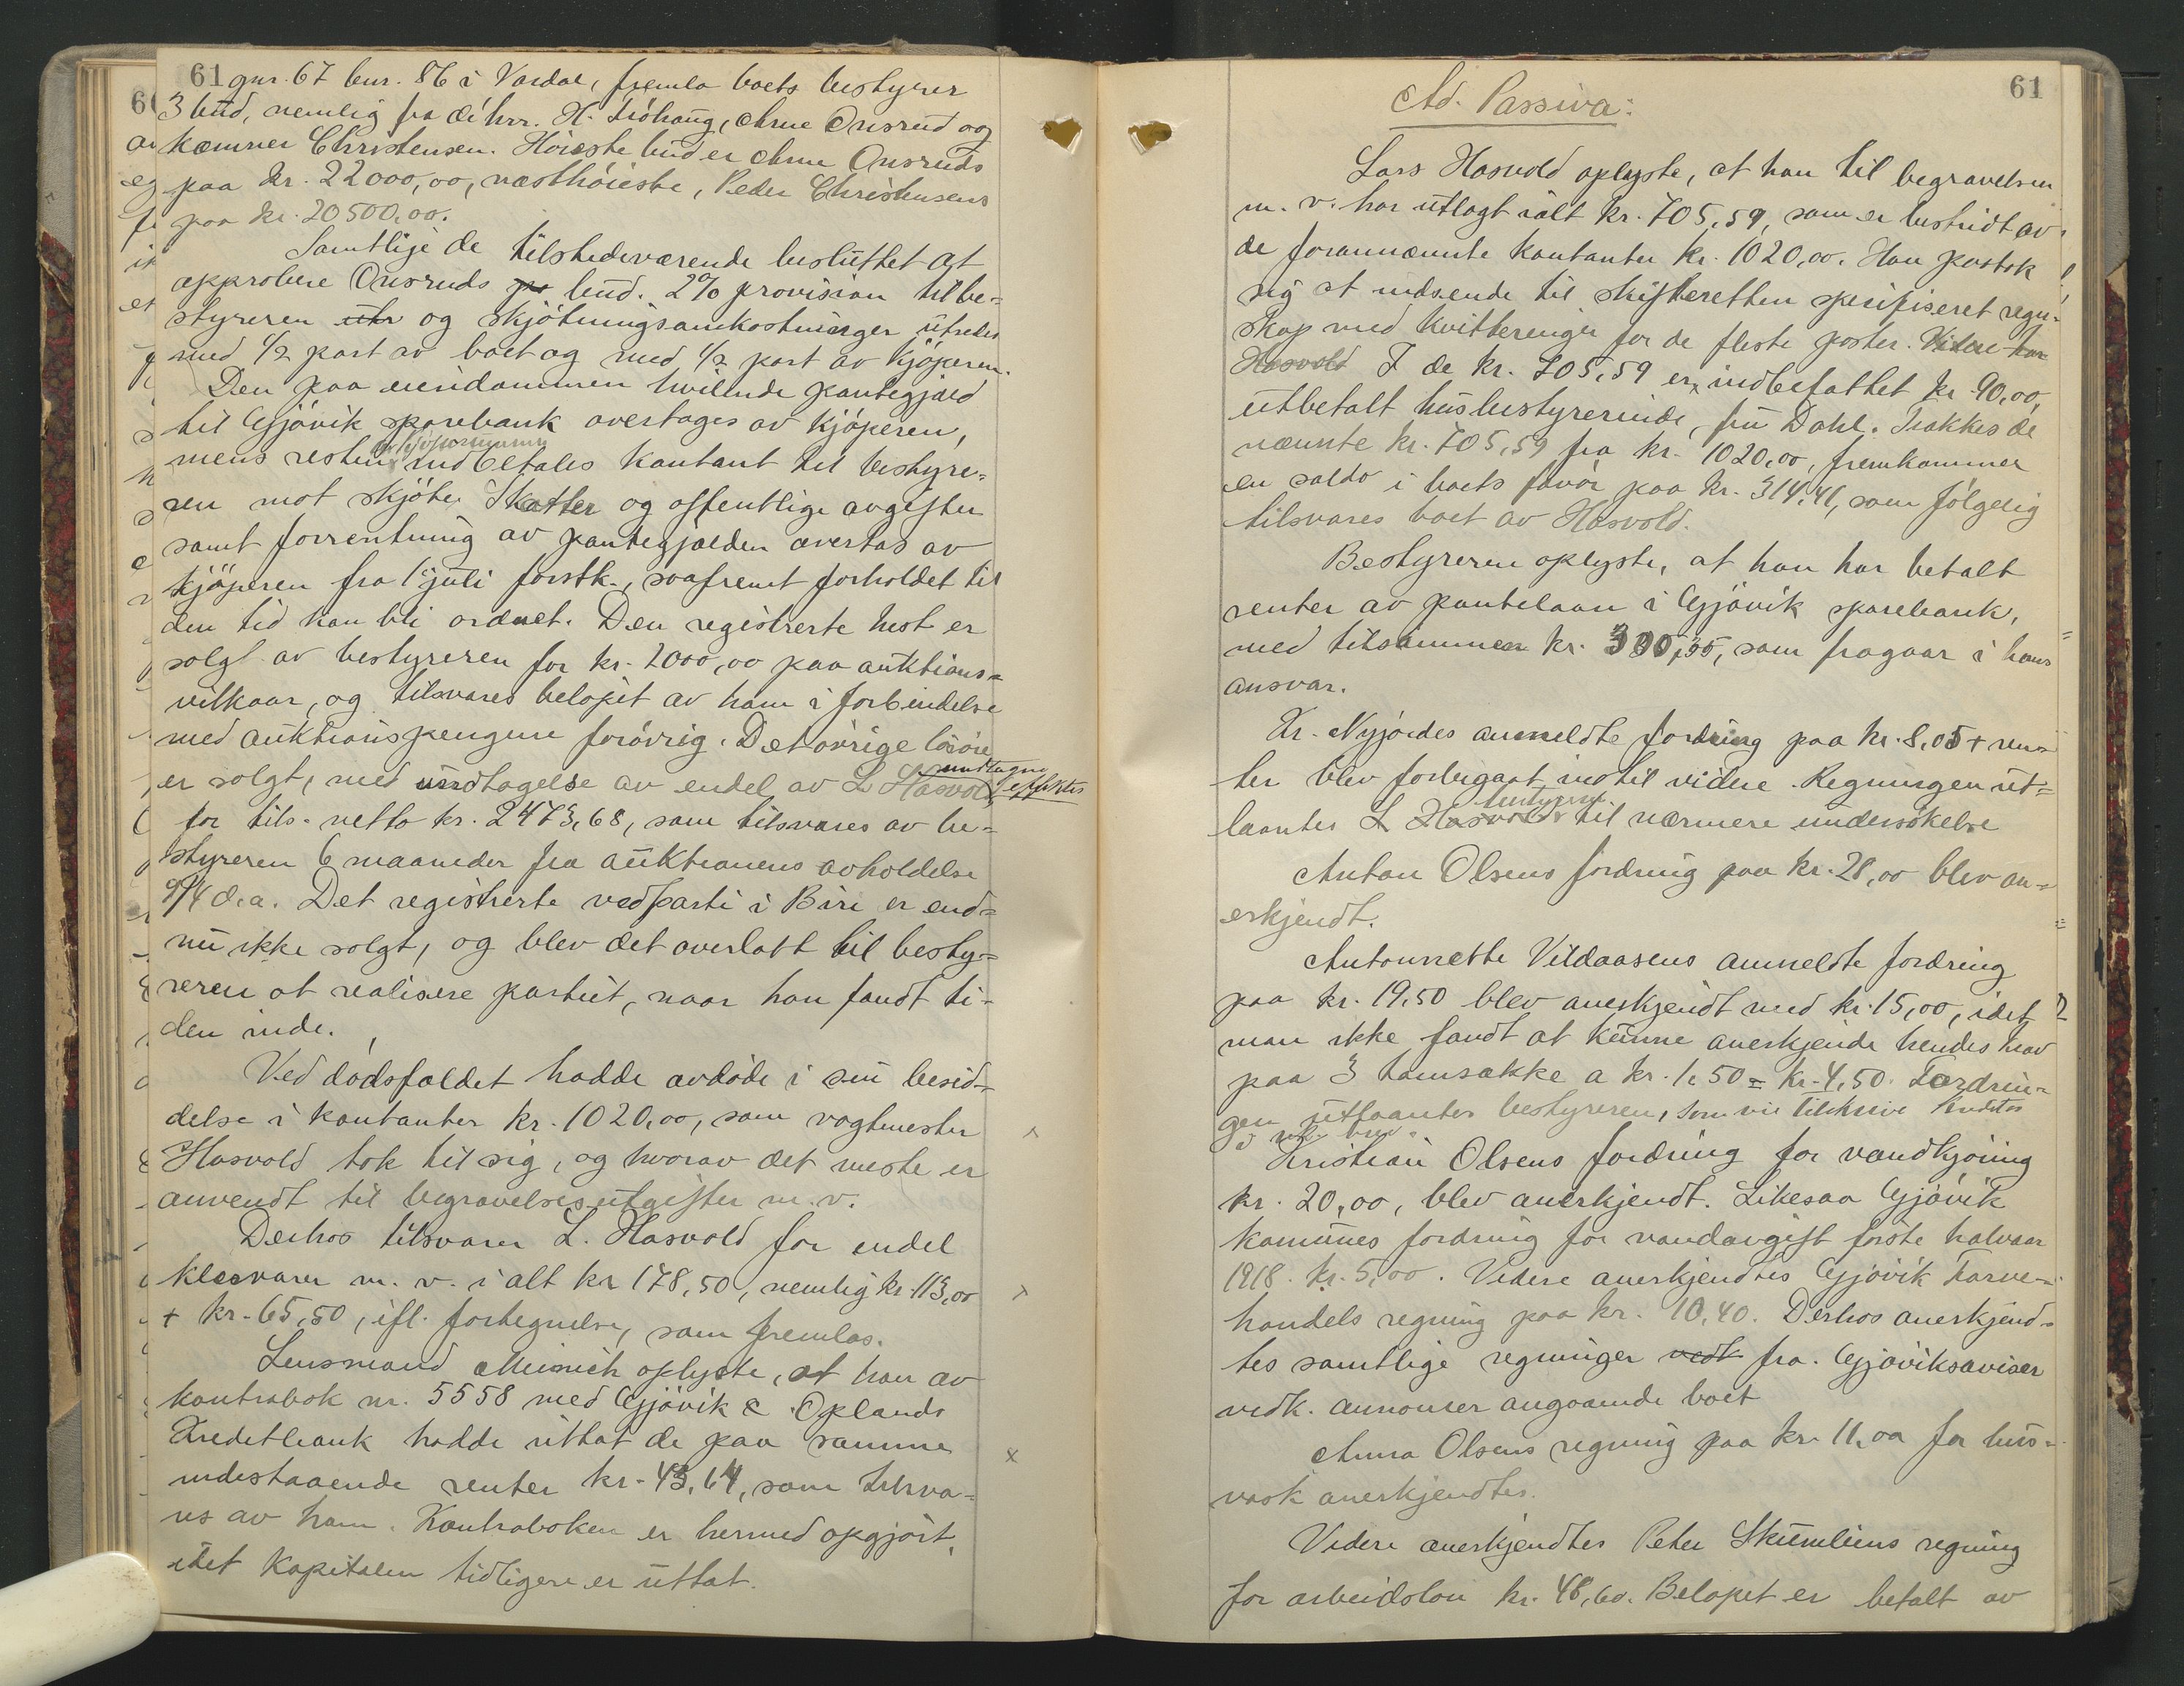 61
gnr. 67 bnr. 86 i Vardal, fremla boets bestyrer
3 bud, nemlig fra d'hrr. H. Liöhaug, Arne Onsrud og
kæmner Christensen. Höieste bud er Arne Onsruds
paa kr. 22000,00, næsthöieste, Peder Christensens
paa kr. 20500,00.
Samtlige de tilstedeværende besluttet at
approbere Onsruds bud. 2% provision til be=
styreren utr og skjötningsomkostninger utredes
med 1/2 part av boet og med 1/2 part av kjöperen.
Den paa eiendommen hvilende pantegjæld
til Gjövik sparebank overtages av kjöperen,
mens resten av kjöpesummen indbetales kontant til bestyre=
ren mot skjöte. Skatter og offentlige avgifter
samt forrentning av pantegjælden overtas av
kjöperen fra 1 juli förstk., saafremt forholdet til
den tid kan bli ordnet. Den registrerte hest er
solgt av bestyreren for kr. 1000,00 paa auktions=
vilkaar, og tilsvares belöpet av ham i forbindelse
med auktionspengene forövrig. Det övrige lösöre
er solgt, med undtagelse av endel av L Hasvold undtagne effekter
for tils. netto kr. 2473,68, som tilsvares av be=
styreren 6 maaneder fra auktionens avholdelse
9/4 d.a. Det registrerte vedparti i Biri er end=
nu ikke solgt, og blev det overlatt til besty=
reren at realisere partiet, naar han fandt ti-
den inde.
Ved dödsfaldet hadde avdöde i sin besid-
delse i kontanter kr. 1020,00, som vagtmester
Hasvold tok til sig, og hvorav det meste er
anvendt til begravelsesutgifter m.v.
Derhos tilsvarer L. Hasvold for endel
klesvarer m. v. i alt kr 178,50, nemlig kr. 113,00
+ kr. 65,50, ifl. fortegnelse, som fremlas.
Lensmand Meinich oplyste, at han av
kontrabok nr. 5558 med Gjövik & Oplands
Kreditbank hadde uttat de paa samme
indestaaende renter kr. 43,64, som tilsva=
res av ham. Kontraboken er hermed opgjört,
idet kapitalen tidligere er uttat.
61
Ad. Passiva:
Lars Hasvold oplyste, at han til begravelsen
m. v. har utlagt ialt kr. 705,59, som er bestridt av
de forannævnte kontanter kr. 1020,00. Han paatok
sig at indsende til skifteretten spesifiseret regn=
skap med kvitteringer for de fleste poster. Videre har
Hasvold I de kr. 705,59 er indbefattet kr. 90,00,
utbetalt husbestyrerinde, fru Dahl. Trækkes de
nævnte kr. 705,59 fra kr. 1020,00, fremkommer
en saldo i boets favör paa kr. 314,41, som fölgelig
tilsvares boet av Hasvold.
Bestyreren oplyste, at han har betalt
renter av pantelaan i Gjövik sparebank,
med tilsammen kr. som fragaar i hans
ansvar.
Kr. Nyjordes anmeldte fordring paa kr. 8,05 + ren=
ter blev forbigaat indtil videre. Regningen ut=
laantes L Hasvold bestyrer til nærmere undersökelse
Anton Olsens fordring paa kr. 28,00 blev an=
erkjendt.
Antonnette Vildaasens anmeldte fordring
paa kr. 19,50 blev anerkjendt med kr. 15,00, idet
man ikke fandt at kunne anerkjende hendes krav
paa 3 tomsække a kr. 1,50 = kr. 4,50. Fordrin=
gen utlaantes bestyreren, som vil tilskrive kreditor
i rek. brev.
Kristian Olsens fordring for vandkjöring
kr. 20,00, blev anerkjendt. Likesaa Gjövik
komunes fordring for vandavgift förste halvaar
1918. kr. 5,00. Videre anerkjendtes Gjövik Farve-
handels regning paa kr. 10,40. Derhos anerkjend=
tes samtlige regninger vedk fra Gjöviksaviser
vedk. annonser angaaende boet
Anna Olsens regning paa kr. 11,00 for hus=
vask anerkjendtes.
Videre anerkjendtes Peter Skumliens regning
for arbeidslön kr. 48,60. Belöpet er betalt av